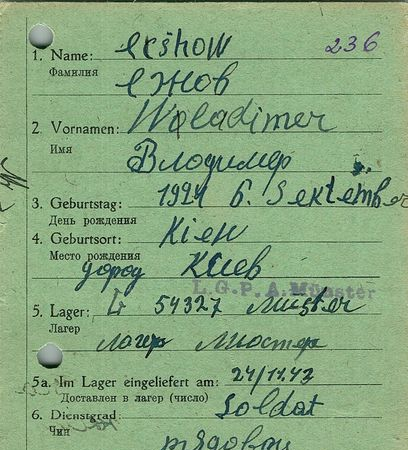 1. Name: ekshow 236
Фамилия
ежов
2. Vornamen: Woladimer
Имя
Владимер
3. Geburtstag: 1924 6. Sektember
День рождения
4. Geburtsort: Kien
Место рождения
город Киев
L.G.P.A. Münster
5. Lager: 54327 Münster
Лагер лагер Мюстер
5a. Im Lager eingeliefert am: 24/11.43
Доставлен в лагер (число)
6. Dienstgrad: Soldat
Чин
рядовой